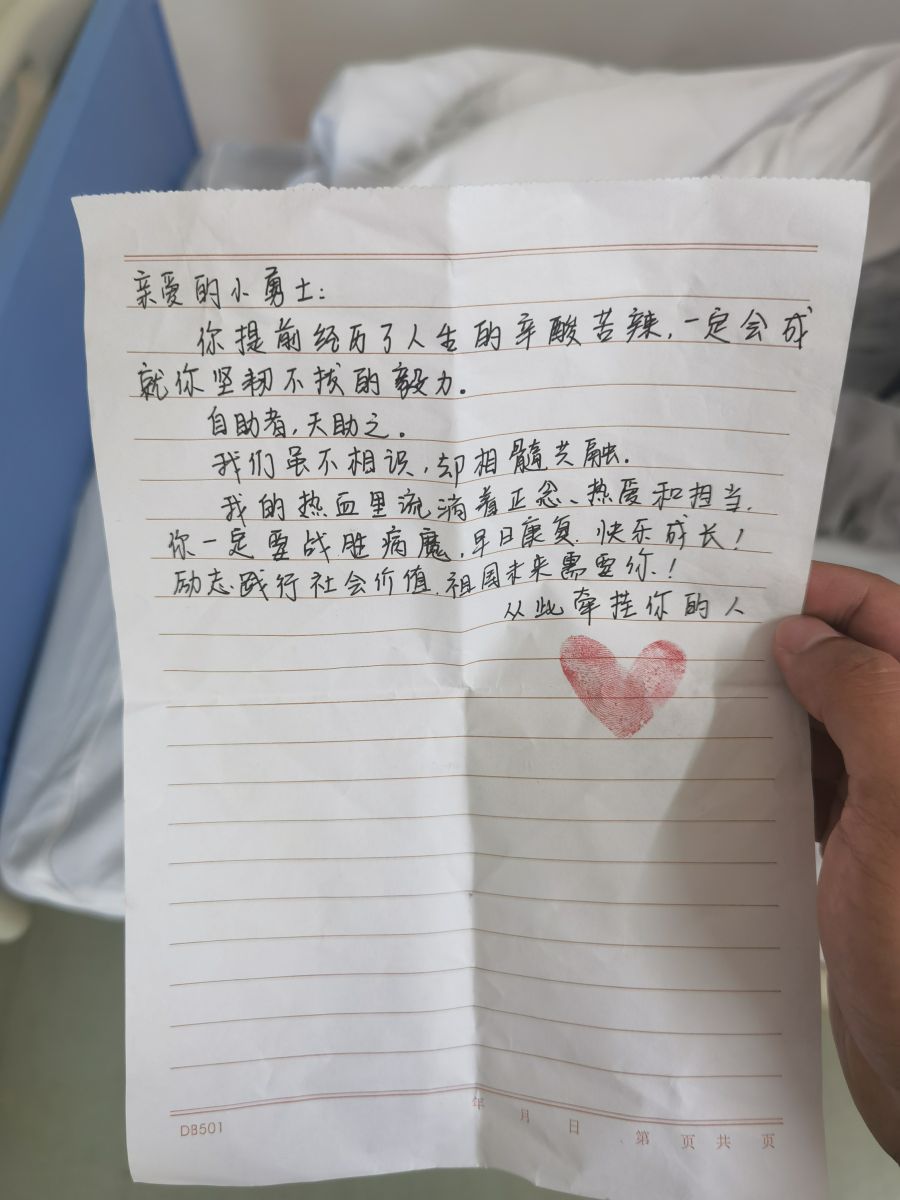 亲爱的小勇士：
你提前经历了人生的辛酸苦辣，一定会成
就你坚韧不拔的毅力。
自助者，天助之。
我们虽不相识，却相髓共融.
我的热血里流淌着正念、热爱和担当.
你一定要战胜病魔，早日康复.快乐成长！
励志践行社会价值.祖国未来需要你！
从此牵挂你的人
年 月 日
DB501
第 页 共 页